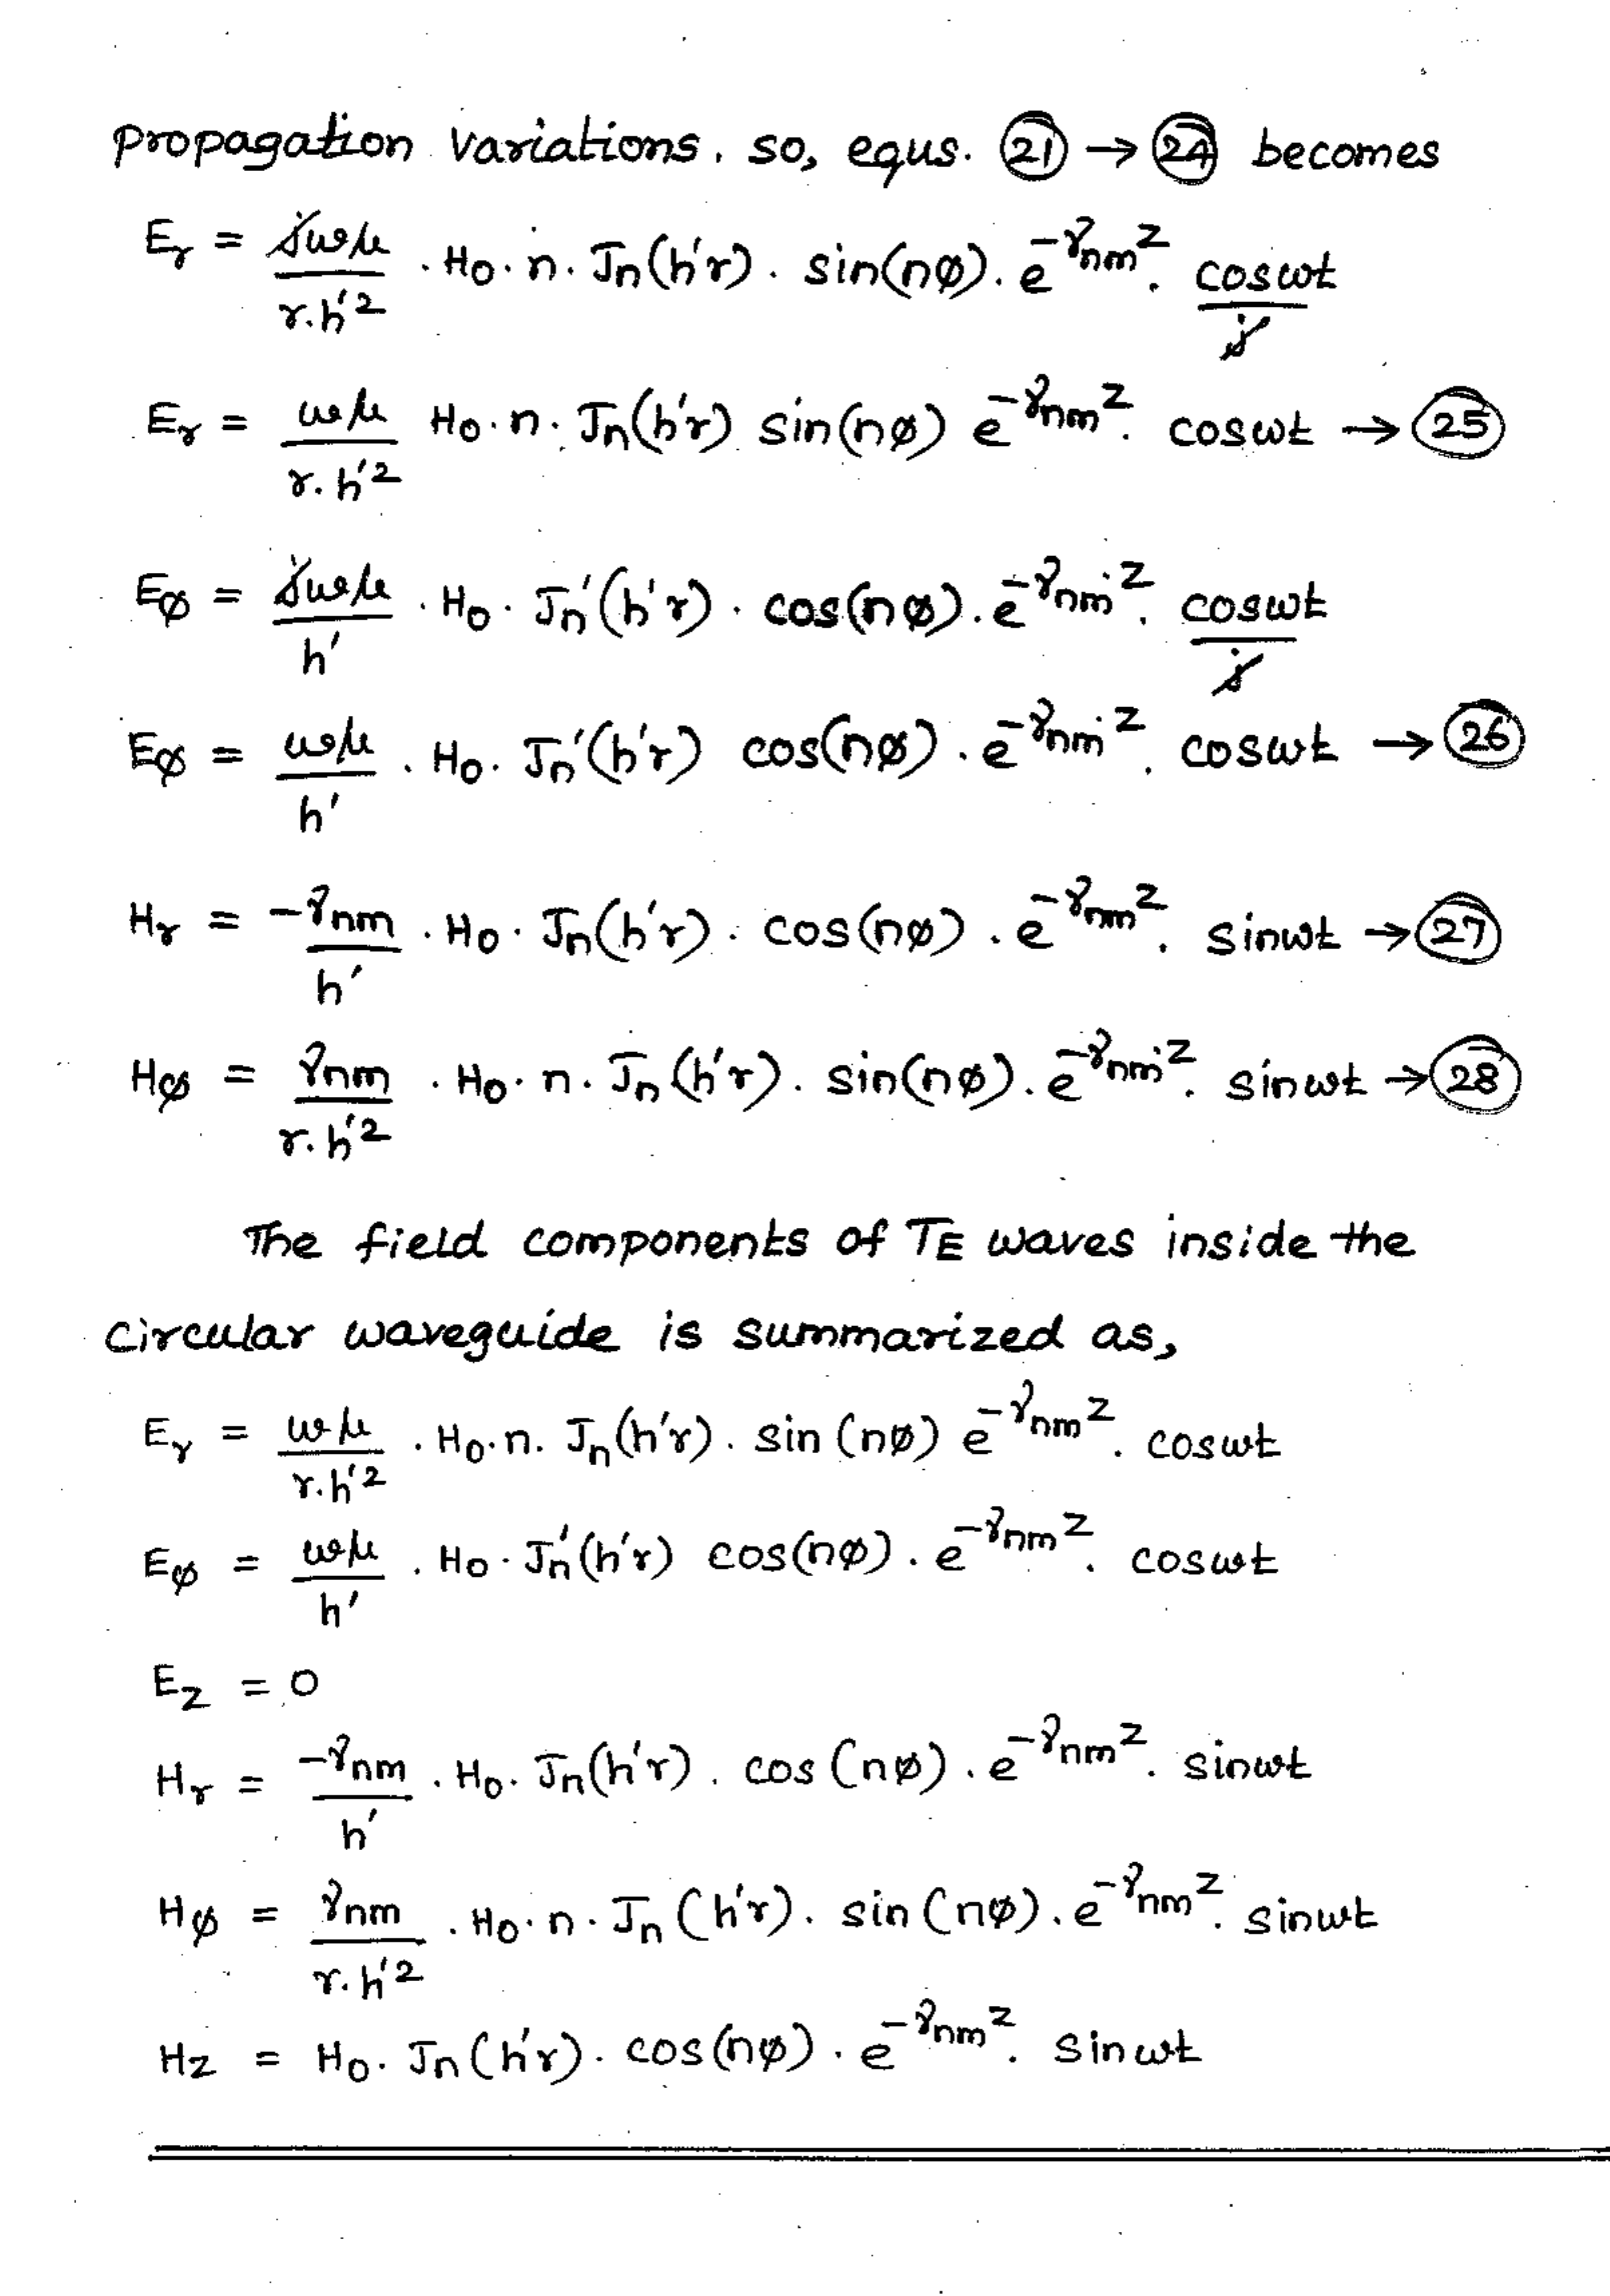 propagation variations. so, equs. (21) → (24) becomes
E_r = jωμ / r.h'² . H₀ . n . Jn(h'r) . sin(nø) . e^(-γnm z) . cosωt / j
E_r = ωμ / r.h'² H₀ . n . Jn(h'r) sin(nø) e^(-γnm z) . cosωt → (25)
Eø = jωμ / h' . H₀ . Jn'(h'r) . cos(nø) . e^(-γnm z) . cosωt / j
Eø = ωμ / h' . H₀ . Jn'(h'r) cos(nø) . e^(-γnm z) . cosωt → (26)
H_r = -γnm / h' . H₀ . Jn(h'r) . cos(nø) . e^(-γnm z) . sinωt → (27)
Hø = γnm / r.h'² . H₀ . n . Jn(h'r) . sin(nø) . e^(-γnm z) . sinωt → (28)
The field components of TE waves inside the
circular waveguide is summarized as,
E_r = ωμ / r.h'² . H₀ . n . Jn(h'r) . sin(nø) e^(-γnm z) . cosωt
Eø = ωμ / h' . H₀ . Jn'(h'r) cos(nø) . e^(-γnm z) . cosωt
E_z = 0
H_r = -γnm / h' . H₀ . Jn(h'r) . cos(nø) . e^(-γnm z) . sinωt
Hø = γnm / r.h'² . H₀ . n . Jn(h'r) . sin(nø) . e^(-γnm z) . sinωt
H_z = H₀ . Jn(h'r) . cos(nø) . e^(-γnm z) . sinωt